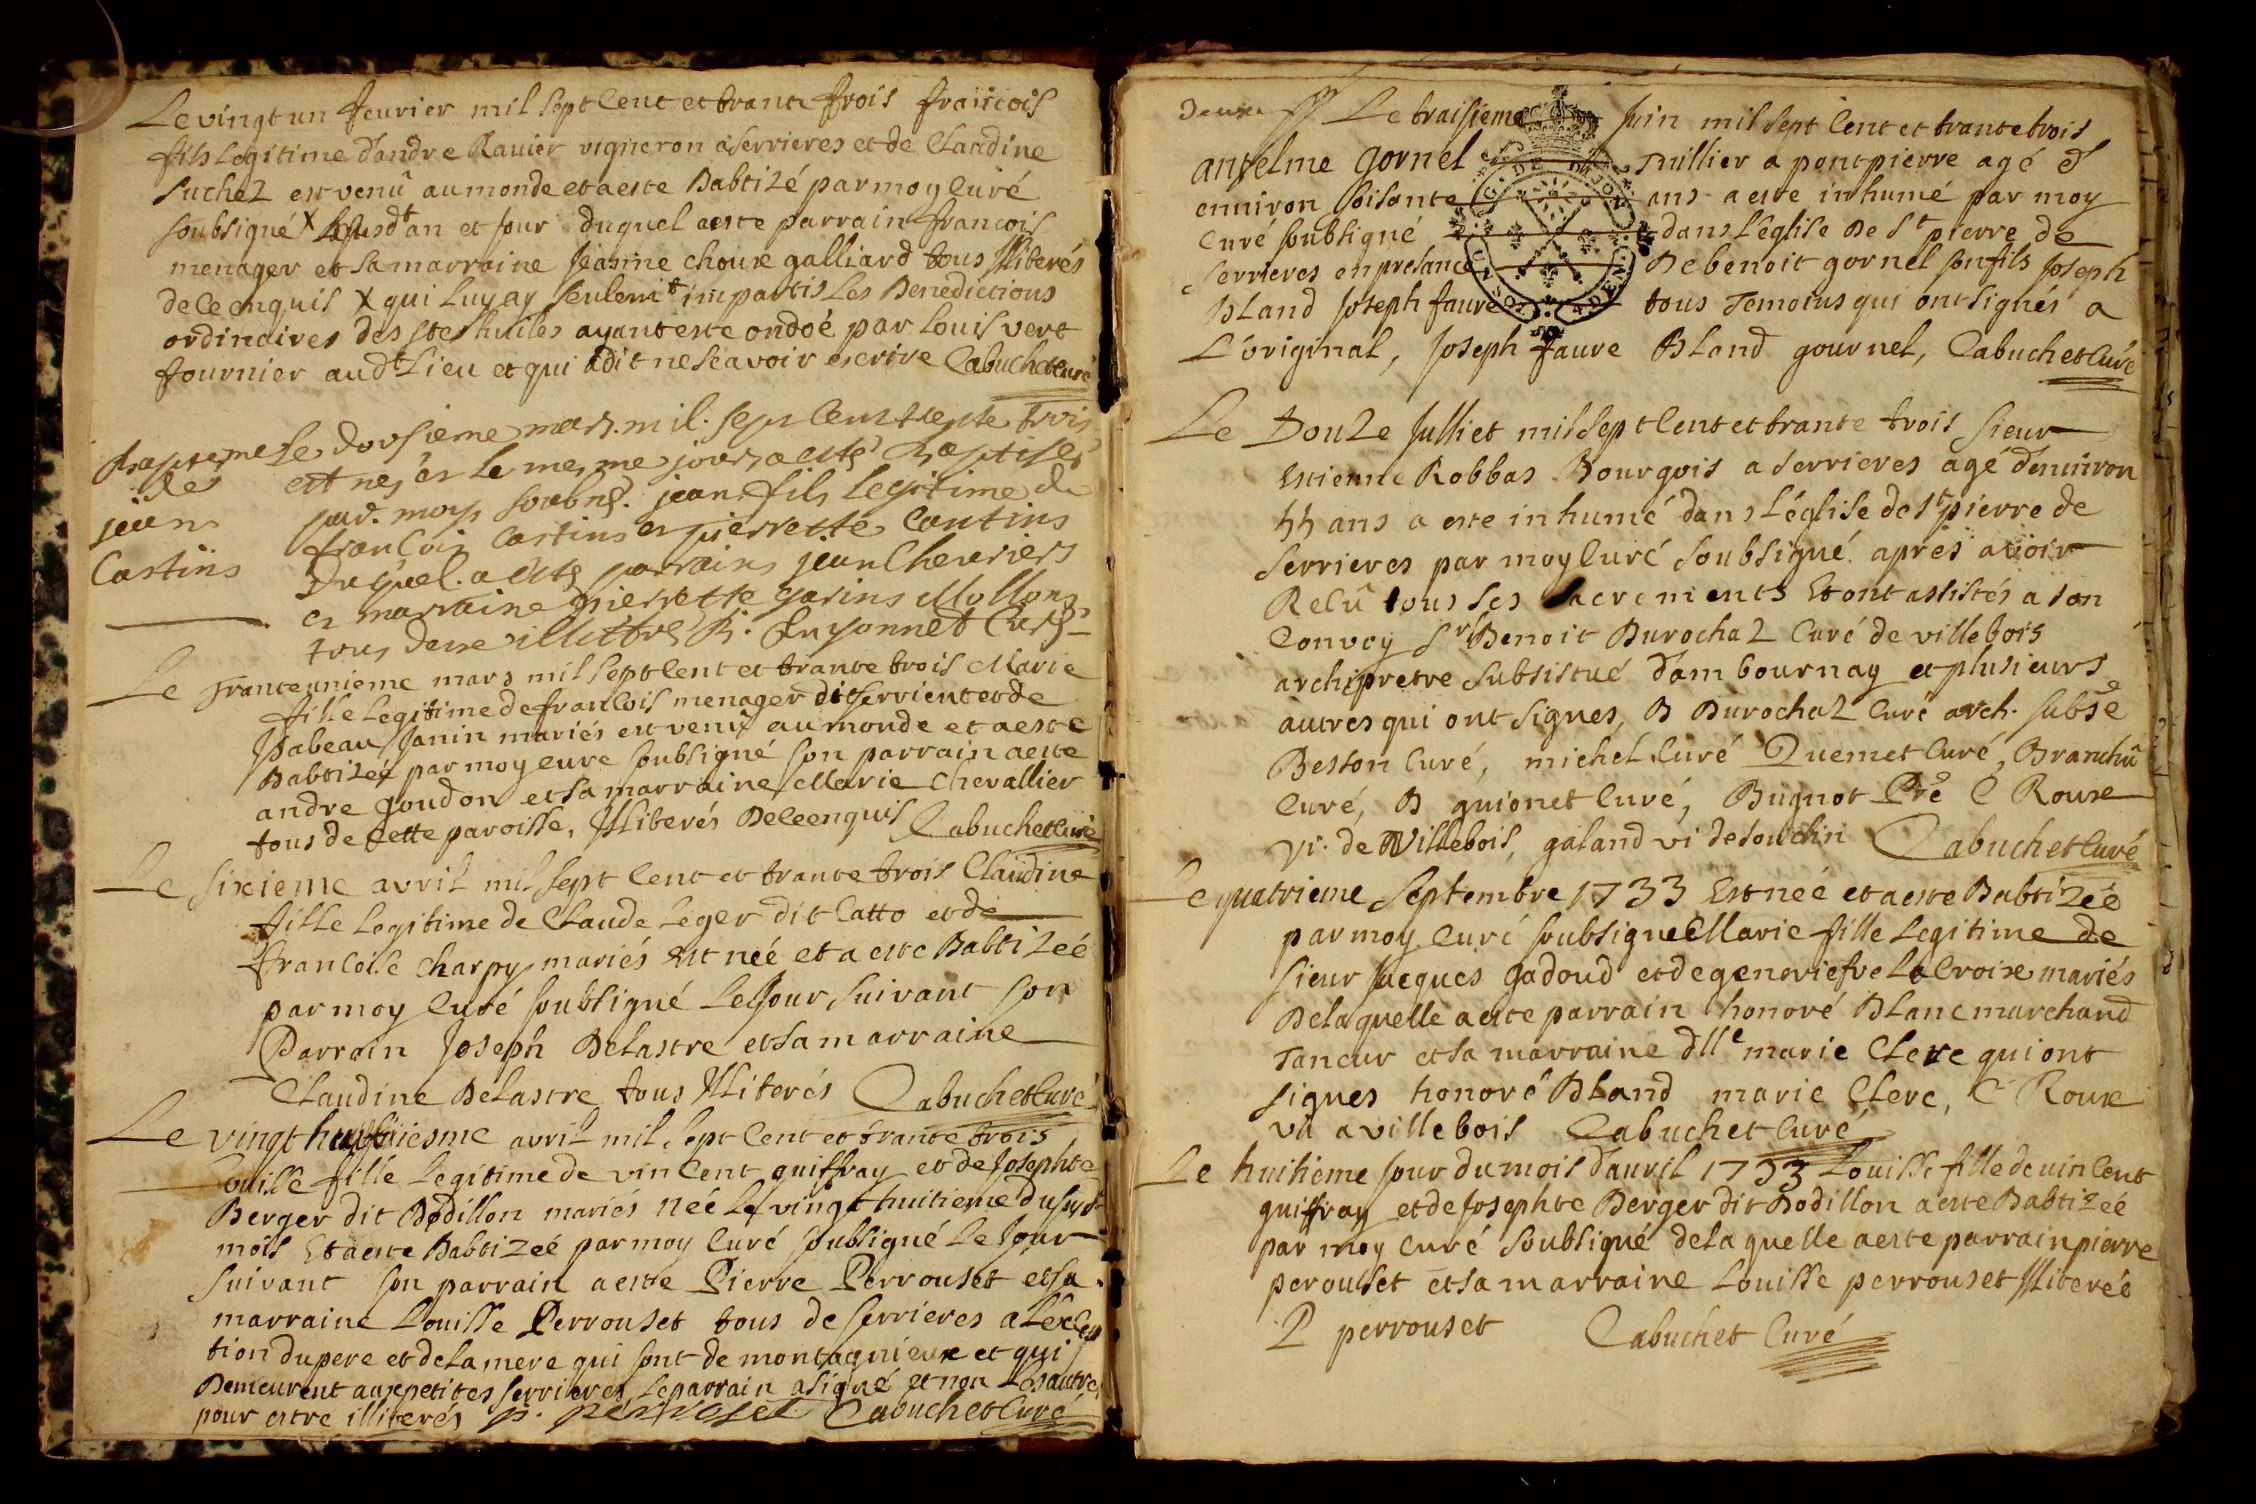 Le vingt un feurier mil sept Cent et trante trois francois
fils Legitime dandre Rauier vigneron a serrieres et de Claudine
Suchel est venû au monde et a este Babtizé par moy Curé
soubsigné X Lesusd.t an et jour duquel a este parrain francois
menager et sa marraine Jeanne choux galliard tous Illiterés
de ce enquis X qui luy ay seulem.t impartis Les Benedictions
ordinaires des stes huiles ayant este ondoé par Louis vert
fournier aud.t Lieu et qui a dit ne scavoir escrire Cabuchet curé
Bapteme Le dousieme mars mil sept Cent trente trois
de est nes et le mesme jour a esté Baptisé
jean par moy soubné jean fils legitime de
Cartins françois Cartins et pierrette Cantins
Duquel a esté parrains jean Cheuriers
et marraine pierrette garins Mollons
tous deux illittré B. Guyonnet Curé
Le Tranteunieme mars mil sept Cent et trante trois Marie
fille Legitime de francois menager dit serrient et de
Isabeau Janin mariés est venû au monde et a este
Babtizéé par moy cure soubsigné son parrain a este
andre goudon et sa marraine Marie Chevallier
tous de cette paroisse, Illiterés De ce enquis Cabuchet Curé
Le sixieme avril mil sept Cent et trante trois Claudine
fille Legitime de Claude Leger dit Catto et de
francoise Charpy mariés Est néé et a este Babtizéé
par moy Curé soubsigné Le Jour suivant son
Parrain Joseph Delastre et sa marraine
Claudine Delastre tous Illiterés Cabuchet Curé
Le vingt huitiesme avril mil sept Cent et trante trois,
Louisse fille Legitime de vincent guiffray et de Josephte
Berger dit Bodillon mariés néé Le vingt huitieme du susd.t
mois Et a este Babtizéé par moy Curé soubsigné Le Jour
suivant son parrain a este Pierre Perrouset et sa
marraine Louisse Perrouset tous de serrieres a Lexcep
tion du pere et de la mere qui sont de montagnieux et qui
Demeurent aux petites serrieres, Le parrain a signé et non Les autres
pour estre illiterés p. perroset Cabuchet Curé
Deux Le traisieme Juin mil sept Cent et trante trois
anselme gornel Tuillier a pontpierre agé d
environ soisante ans a este inhumé par moy
Curé soubsigné dans L'eglise De S.t pierre de
serrieres en presance De benoit gornel son fils Joseph
Bland Joseph faure tous Temoins qui ont signés a
L'original, Joseph faure Bland gournel, Cabuchet Curé
Le Douze Julliet mil sept Cent et trante trois sieur
Estienne Robbas Bourgois a serrieres agé denuiron
55 ans a este inhumé dans L'église de s.t pierre de
serrieres par moy Curé soubsigné apres auoir
Relû tous ses sacrements Et ont assistés a son
Convoy s.r Benoit Durochat Curé de villebois
archipretre substitué d'ambournay et plusieurs
autres qui ont signes, B Durochat Curé arch. subsé
Beston Curé, michel Curé Quemet Curé, Branchû
Curé, B guionet Curé, Bugnot Ptre C Roux
vi. de Villebois, galand vi de souclin Cabuchet Curé
Le quatrieme septembre 1733 Est néé et a este Babtizéé
par moy Curé soubsigne Marie fille Legitime de
sieur Jacques gadoud et de genevieve La Croix mariés
De laquelle a este parrain honoré Blanc marchand
Taneur et sa marraine dlle marie Clerc qui ont
signes honoré Bland marie Clerc, C Roux
vû a villebois Cabuchet Curé
Le huitieme Jour du mois d'auril 1733 Louisse fille de vincent
guiffray et de Josephte Berger dit Bodillon a este Babtizéé
par moy Curé soubsigué de laquelle a este parrain pierre
perouset et sa marraine Louisse perrouset Illiteréé
P perrouset Cabuchet Curé